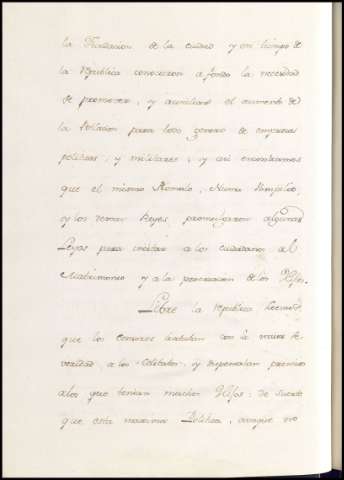 la Fundacion de la ciudad y en tiempo de
la Republica conocieron a fondo la necesidad
de promover, y auxiliar el aumento de
la Poblacion para todo genero de empresas
politicas, y militares; y asi encontramos
que el mismo Romulo, Numa Pompilio
y los demas Reyes, promulgaron algunas
Leyes para incitar a los ciudadanos al
Matrimonio y a la procreacion de los Hijos.
Libre la republica
que los censores trataban con la mayor se
veridad, a los Celibatos, y dispensaban premios
a los que tenian muchos Hijos: de suerte
que esta maxima Politica, aunque no